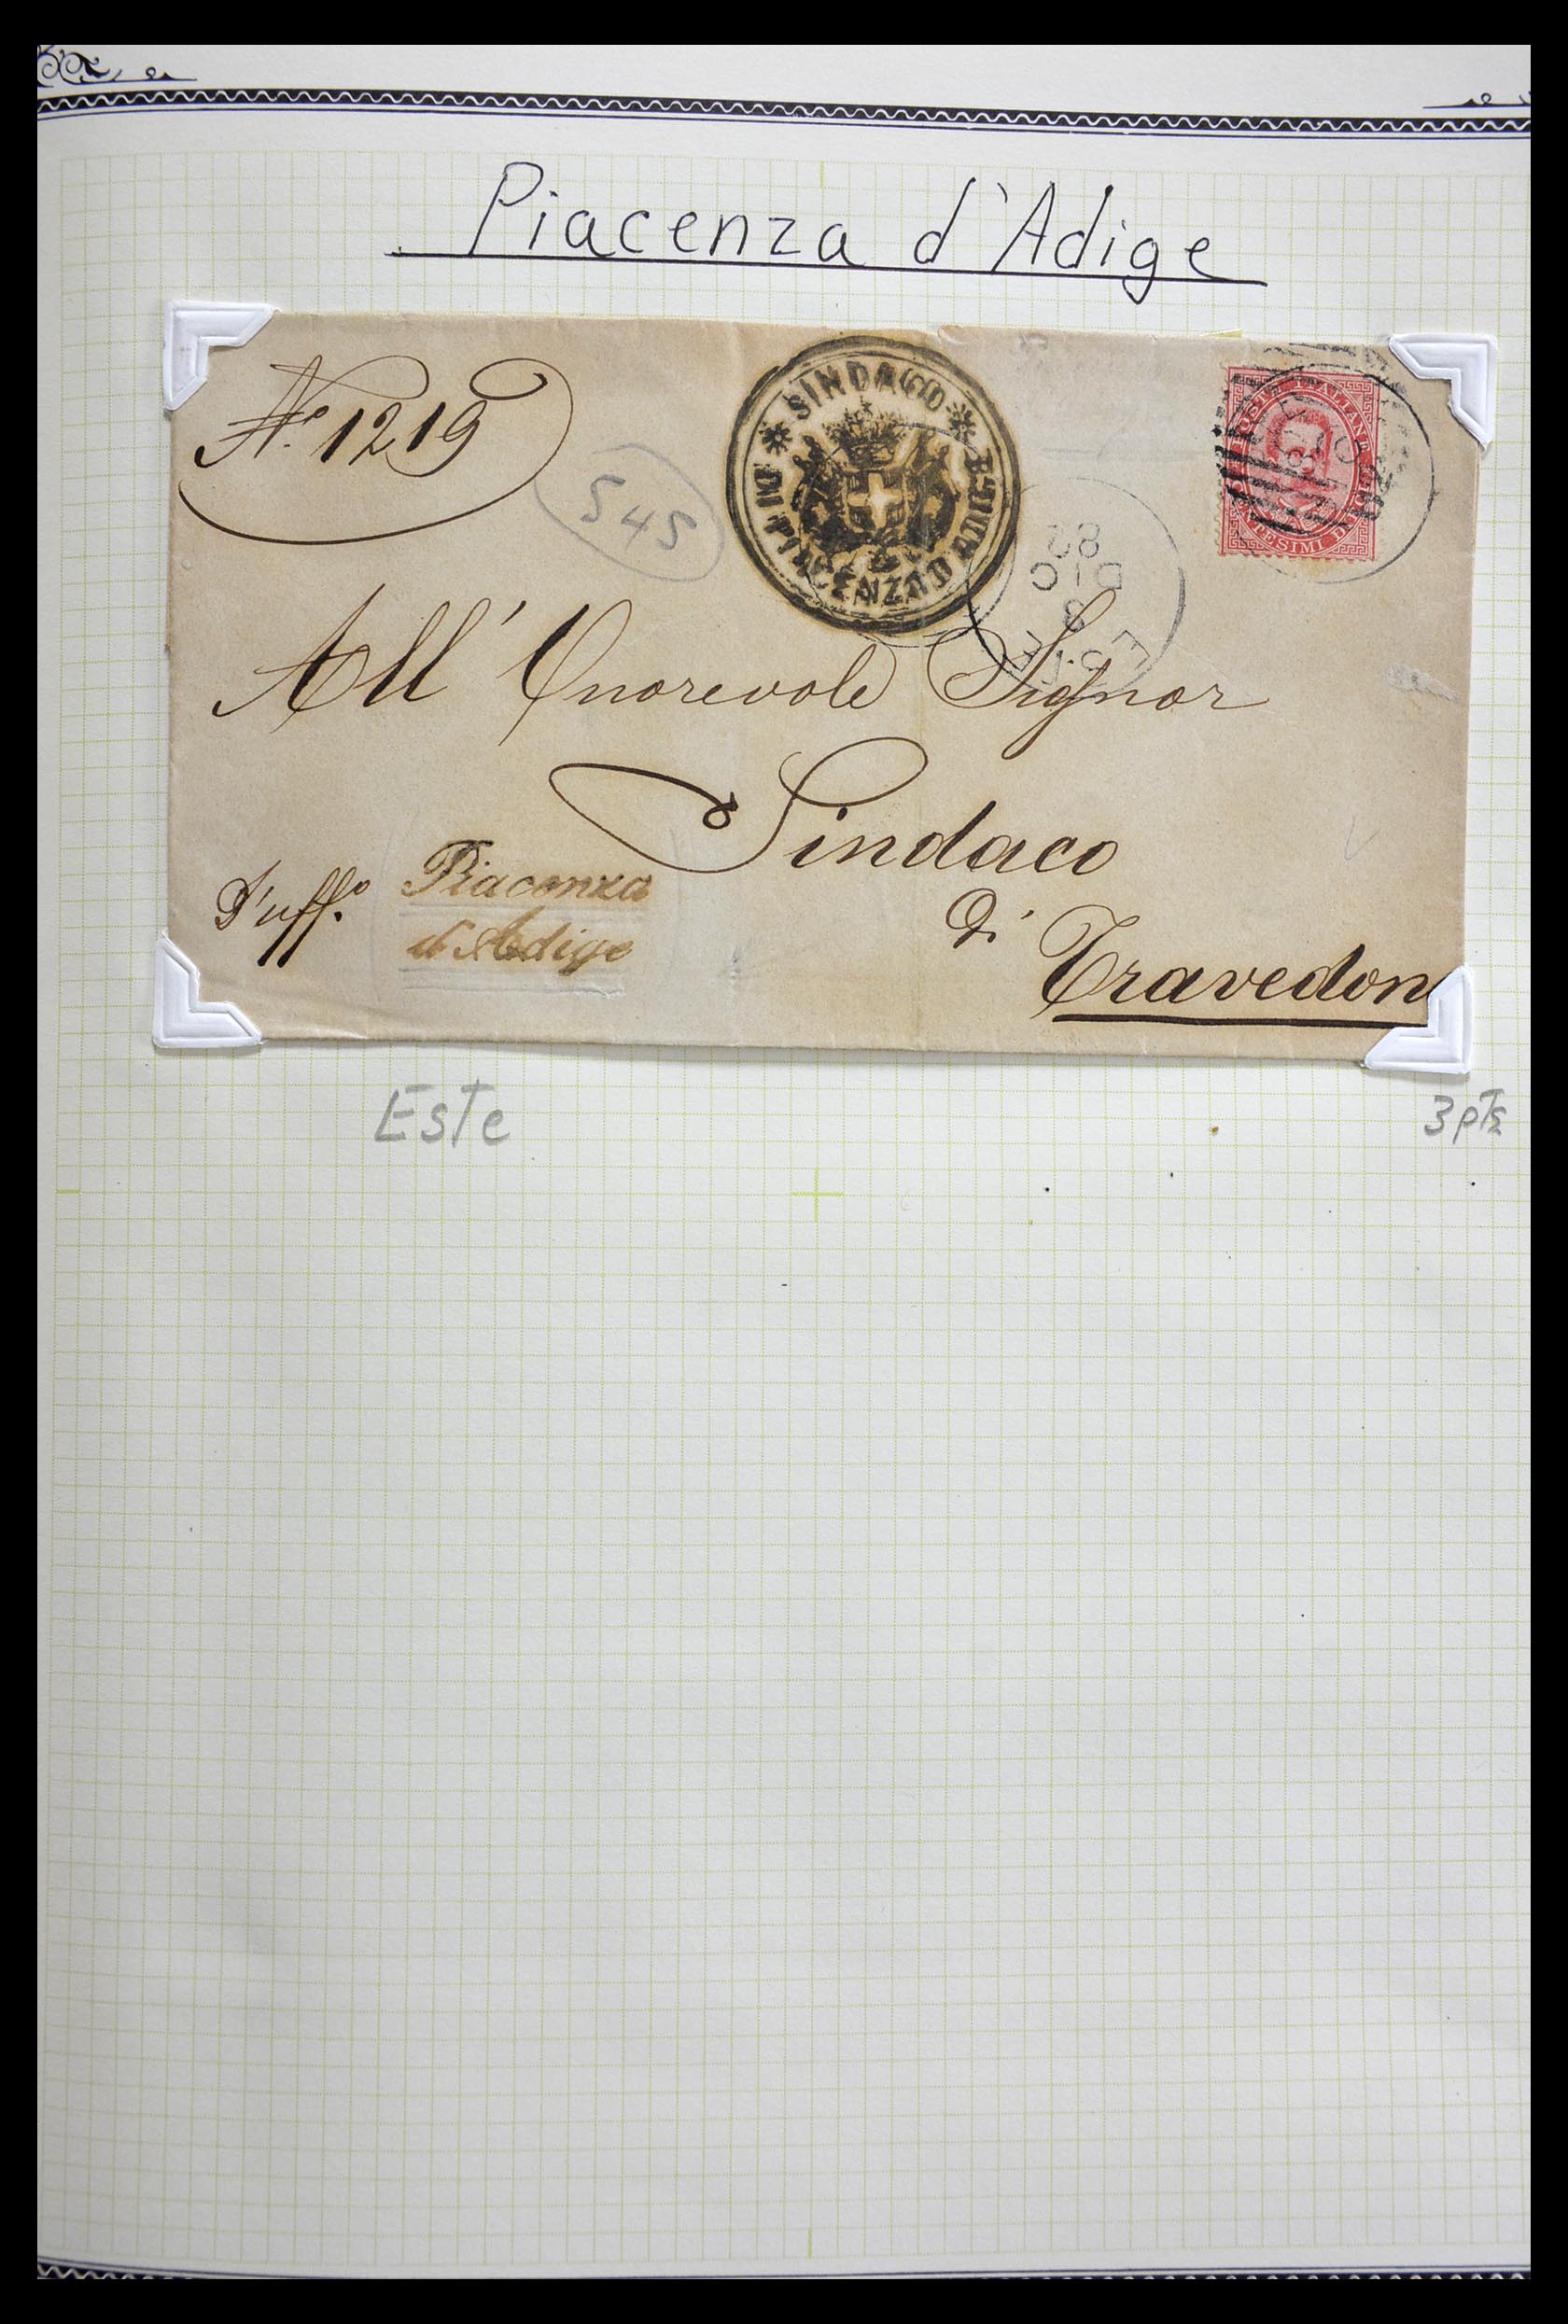 Piacenza d'Adige
N.° 1219
545
SINDACO
DI PIACENZA D'ADIGE
POSTE ITALIANE
CENTESIMI DIECI
ESTE
8
DIC
82
All' Onorevole Signor
Sindaco
di
Travedon
D'uff.°
Piacenza
d'Adige
Este
3 pts